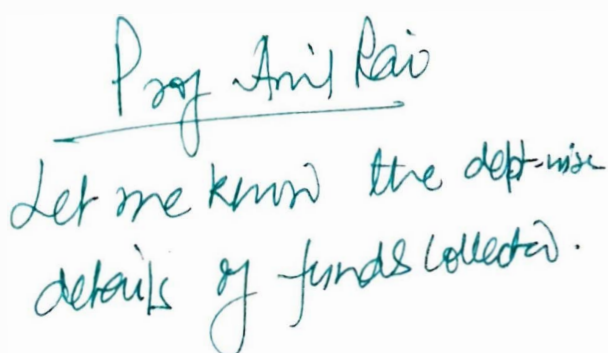 Prof Anil Rao
Let me know the dept-wise
details of funds collected.